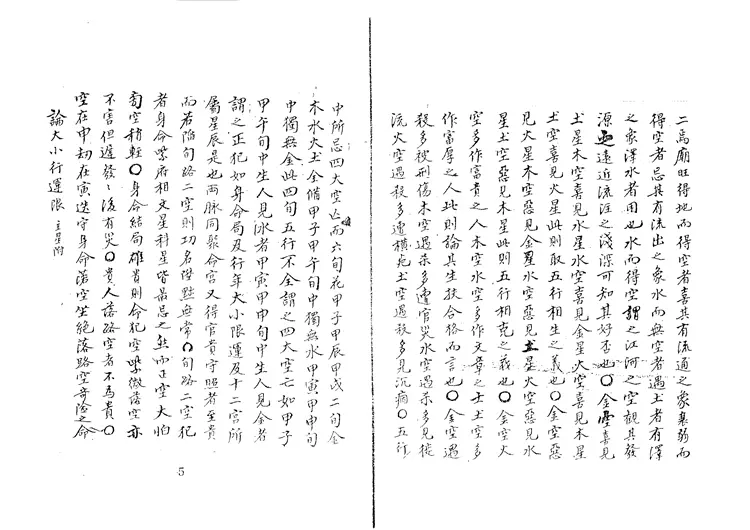 二為廟旺得地而得空者喜其有流通之象衰弱而
得空者忌其有流出之象水而無空者遇土者有澤
之象澤水者用也水而得空謂之江河之空觀其發
源遠近流涯之淺深可知其好否也〇金空喜見
土星木空喜見水星水空喜見金星火空喜見木星
土空喜見火星此則取五行相生之義也〇金空惡
見火星木空惡見金星水空惡見土星火空惡見水
星土空惡見木星此則五行相克之義也〇金空火
空多作富貴之人木空水空多作文章之士土空多
作富厚之人此則論其生扶合格而言也〇金空遇
殺多被刑傷木空遇殺多遭官災水空遇殺多見徒
流火空遇殺多遭橫死土空遇殺多見沉痼〇五行
中所忌四大空亡而六旬花甲子甲辰甲戌二旬金
木水火土全備甲子甲午旬中獨無水甲寅甲申旬
中獨無金此四旬五行不全謂之四大空亡如甲子
甲午旬中生人見水者甲寅甲申旬中生人見金者
謂之正犯如身命局及行年大小限運及十二宮所
屬星辰是也兩脈同聚命宮又得官貴守照者至貴
而若陷旬路二空則功名陞黜無常〇旬路二空犯
者身命紫府相文星科星皆最忌之然而正空大怕
旬空稍輕〇身命結局雄貴則命犯空紫微落空亦
不害但遲發後有災〇貴人落路空者不為貴〇
空在申劫在寅迭守身命落空坐絕落路空奇險之命
論大小行運限 主星附
5